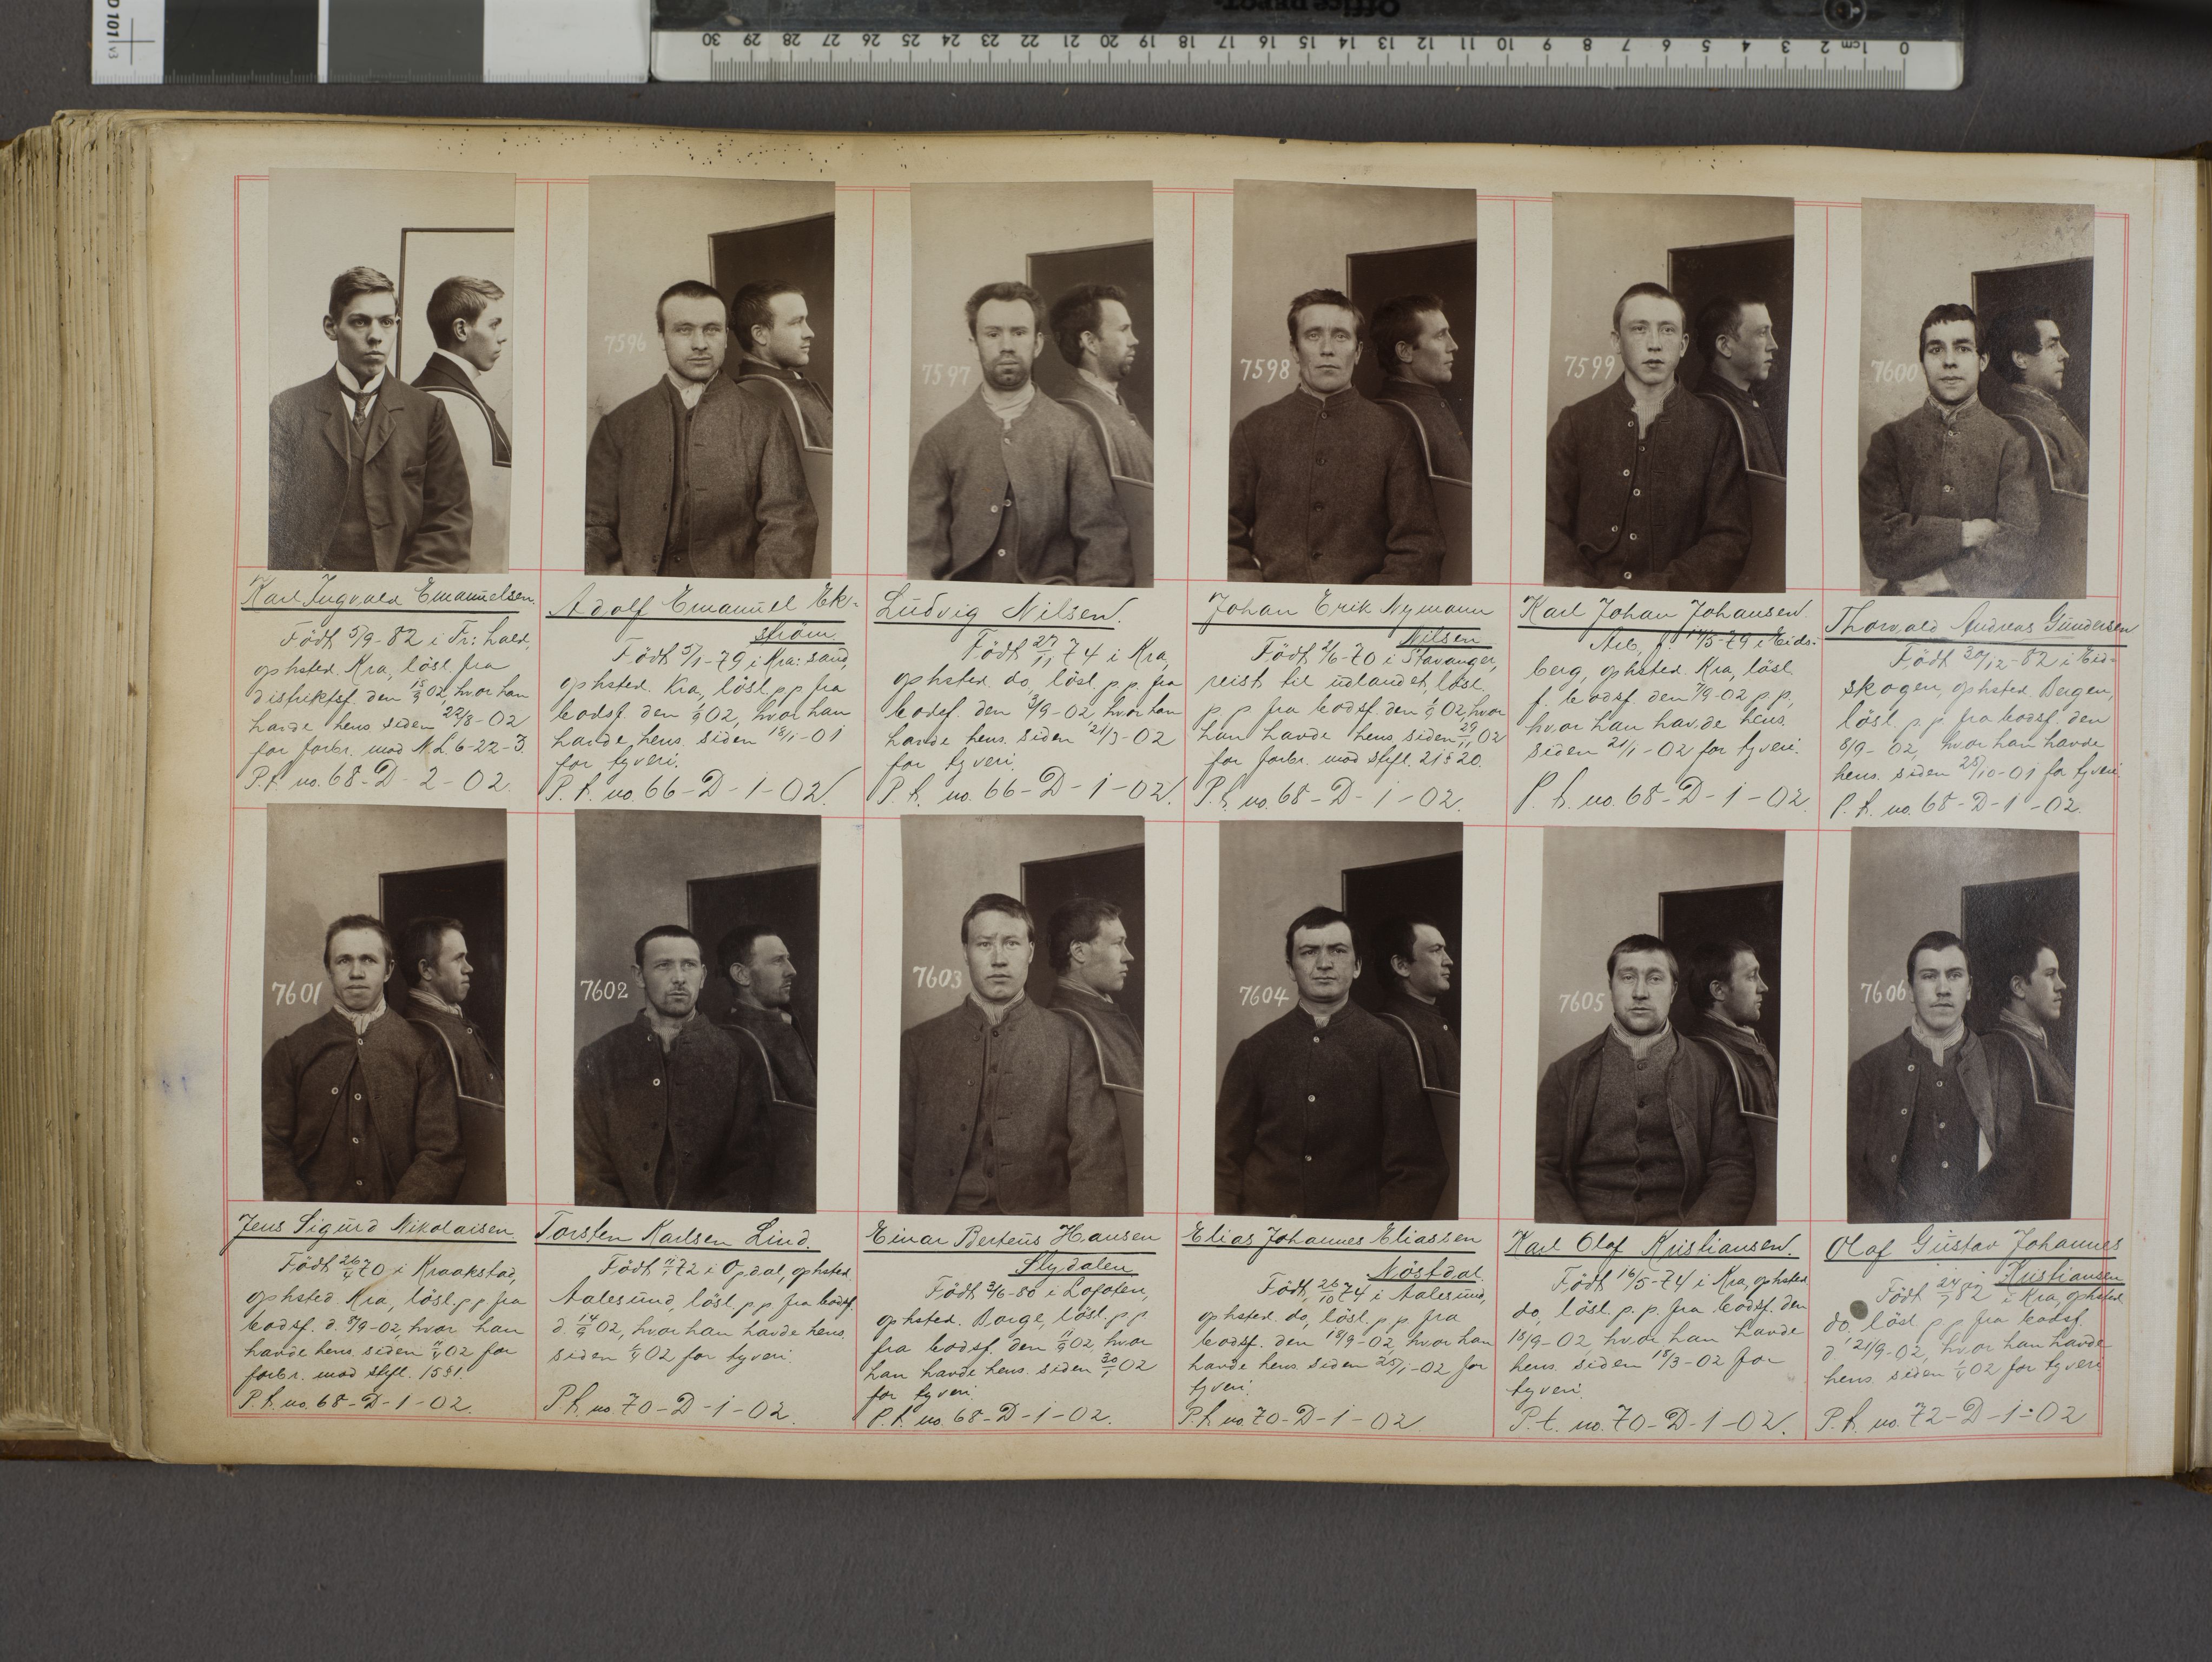 D 101 v3
Office DEPOT
30 29 28 27 26 25 24 23 22 21 20 19 18 17 16 15 14 13 12 11 10 9 8 7 6 5 4 3 2 1cm 0
Karl Ingvald Emanuelsen.
Født 5/9-82 i Fr: hald,
ophsted. Kra, løsl. fra
distriktsf. den 15/9 02, hvor han
havde hens. siden 22/8-02
for forbr. mod N.L 6-22-3.
P.t. no. 68-D-2-02.
7596
Adolf Emanuel Ek-
strøm.
Født 5/1-79 i Kra: sand,
ophsted. Kra, løsl. pp fra
bodsf. den 1/9 02, hvor han
havde hens. siden 18/1-01
for tyveri.
P.t. no. 66-D-1-02.
7597
Ludvig Nilsen.
Født 27/11 74 i Kra,
ophsted. do, løsl. p.p. fra
bodsf. den 3/9-02, hvor han
havde hens. siden 21/3-02
for tyveri.
P.t. no. 66-D-1-02.
7598
Johan Erik Nymann
Nilsen
Født 2/6-70 i Stavanger,
reist til udlandet, løsl.
p p fra bodsf. den 1/9 02, hvor
han havde hens. siden 02
for forbr. mod stfl. 21 § 20.
P.t. no. 68-D-1-02.
7599
Karl Johan Johansen.
Arb, f. 14/5-79 i Eids-
berg, ophsted. Kra, løsl.
f. bodsf. den 7/9-02 p.p,
hvor han havde hens.
siden 21/1-02 for tyveri.
P.t. no. 68-D-1-02.
7600
Thorvald Andreas Gundersen
Født 30/12-82 i Eid-
skogen, ophsted. Bergen,
løsl. p.p. fra bodsf. den
8/9-02, hvor han havde
hens. siden 25/10-01 for tyveri.
P.t. no. 68-D-1-02.
7601
Jens Sigurd Nikolaisen.
Født 26/4 70 i Kraakstad,
ophsted. Kra, løsl. pp fra
bodsf. d. 9/9-02, hvor han
havde hens. siden 02 for
forbr. mod stfl. 15 § 1.
P.t. no. 68-D-1-02.
7602
Torsten Karlsen Lind.
Født 72 i Opdal, ophsted.
Aalesund, løsl. p.p fra bodsf.
d 14/9 02, hvor han havde hens.
siden 02 for tyveri.
P.t. no. 70-D-1-02.
7603
Einar Berteus Hansen
Slydalen
Født 3/6-80 i Lofoten,
ophsted. Borge, løsl. pp
fra bodsf. den 11/9 02, hvor
han havde hens. siden 30/1 02
for tyveri.
P.t. no. 68-D-1-02.
7604
Elias Johannes Eliassen
Nøstdal.
Født, 26/10 74 i Aalesund,
ophsted. do, løsl. p p fra
bodsf. den 18/9-02, hvor han
havde hens. siden 25/1-02 for
tyveri.
P.t. no. 70-D-1-02
7605
Karl Olaf Kristiansen.
Født 16/5-74 i Kra, ophsted.
do, løsl. p. p. fra bodsf. den
18/9-02, hvor han havde
hens. siden 15/3-02 for
tyveri.
P.t. no. 70-D-1-02.
7606
Olaf Gustav Johannes
Kristiansen
Født 24/7 82 i Kra, ophsted.
do, løsl p p fra bodsf.
d 21/9-02, hvor han havde
hens. siden 02 for tyveri
P.t. no. 72-D-1-02